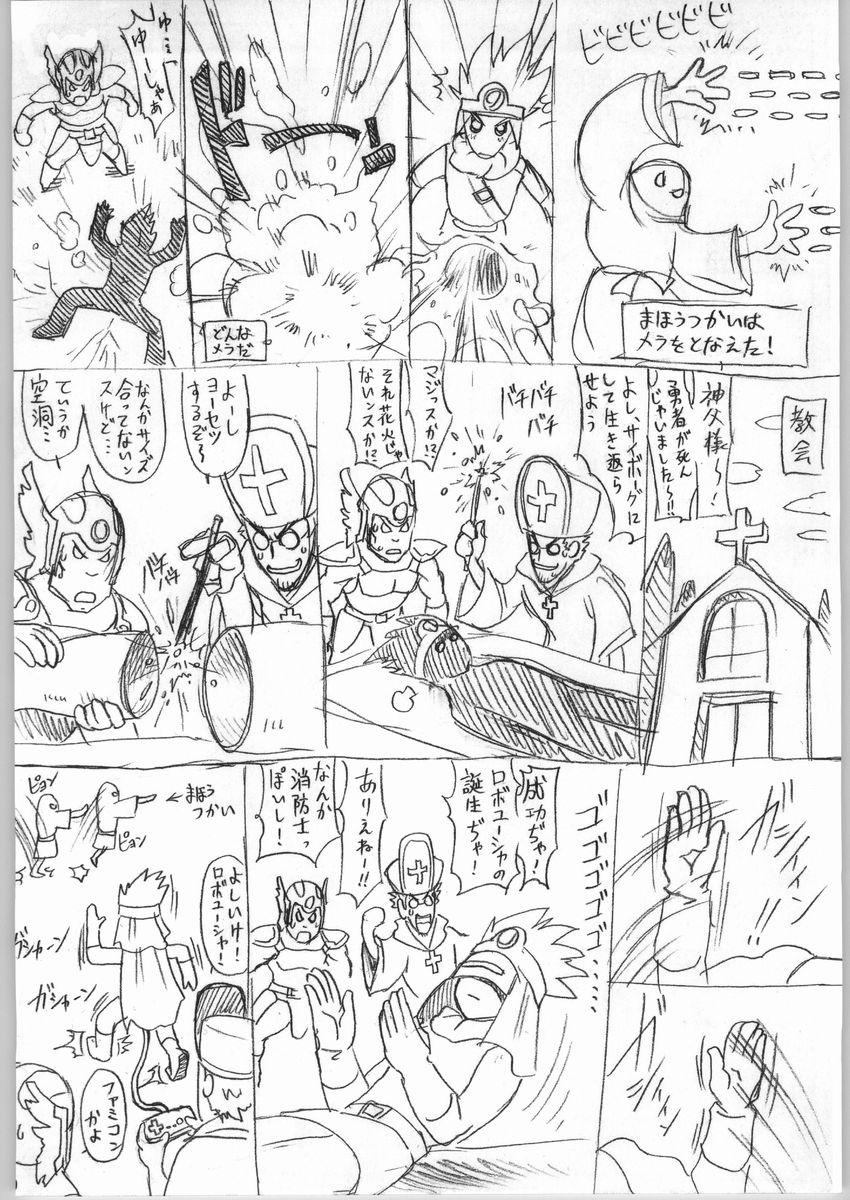 ビビビビビビ
まほうつかいは
メラをとなえた！
どんな
メラだ
ゆ…
ゆーしゃあ
教会
神父様〜！
勇者が死ん
じゃいました〜!!
よし、サイボーグに
して生き返ら
せよう
バチバチ
バチ
マジっスか!?
それ花火じゃ
ないンスか!?
よーし
ヨーセツ
するぞ〜
バチ
バチ
なんかサイズ
合ってないン
スけど…
ていうか
空洞…
ゴゴゴゴゴゴ……
成功ぢゃ！
ロボユーシャの
誕生ぢゃ！
ありえねー!!
なんか
消防士っ
ぽいし！
ピョン
ピョン
←まほう
つかい
よしいけ！
ロボユーシャ！
ガシャーン
ガシャーン
ファミコン
かよ